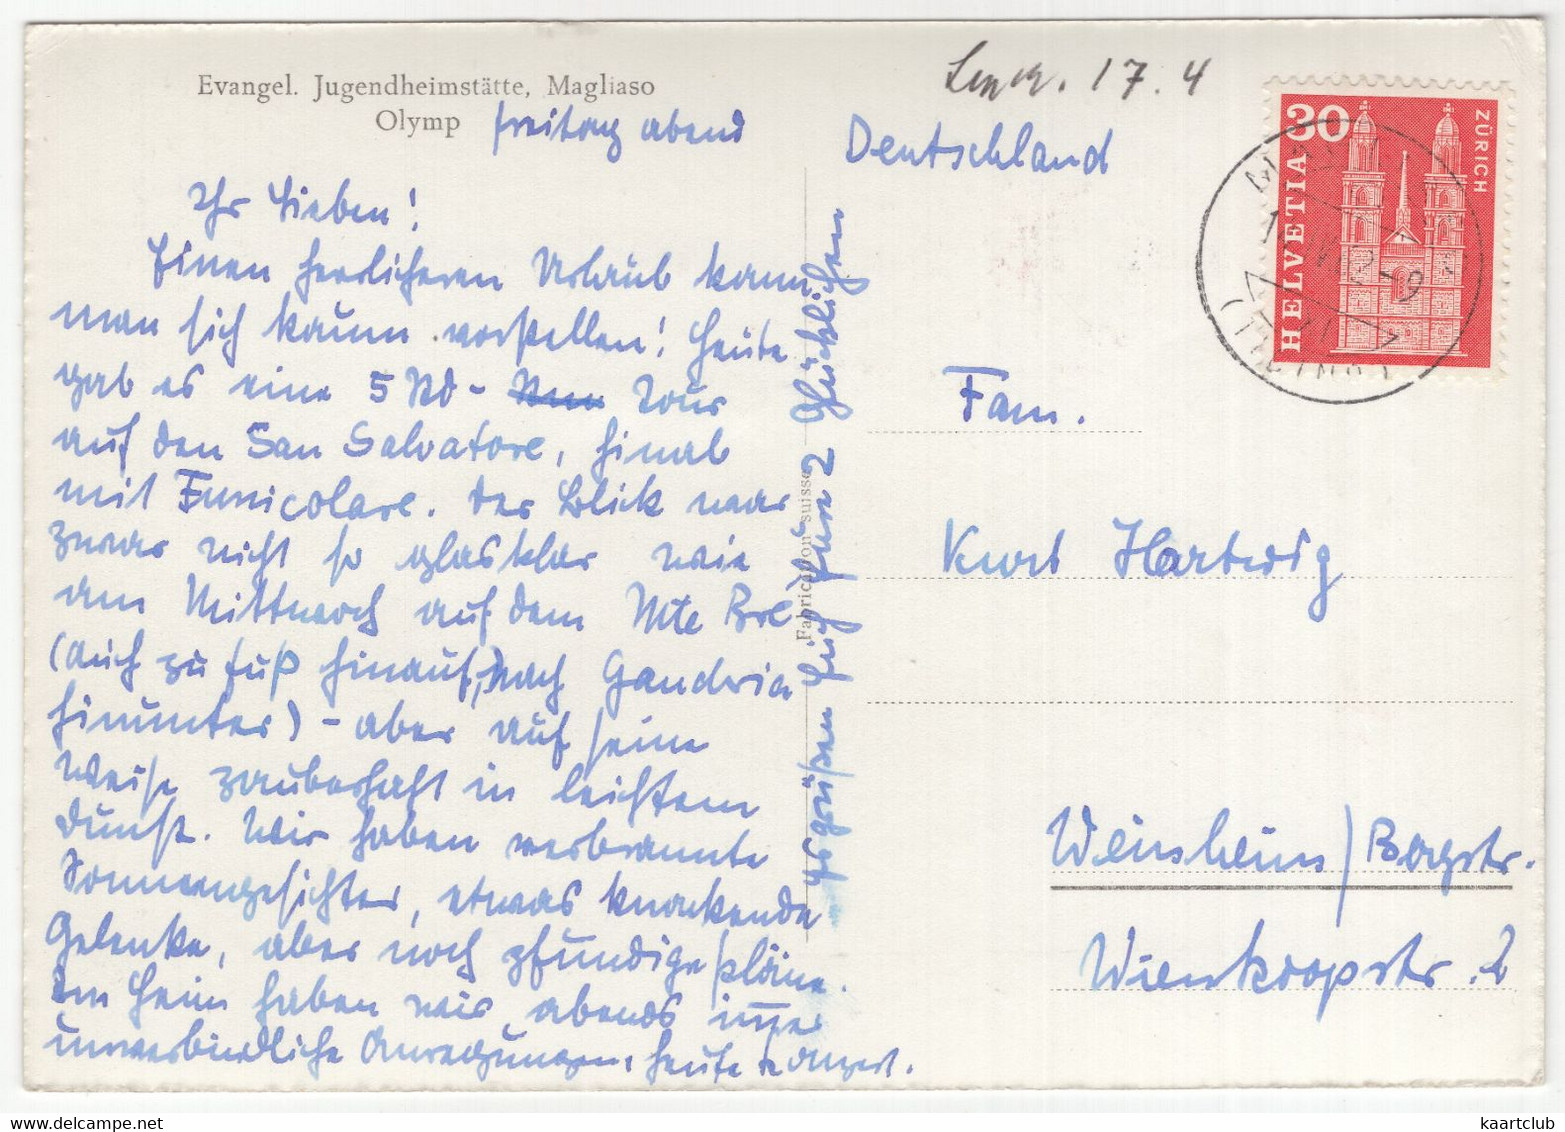 Evangel. Jugendheimstätte, Magliaso
Olymp
freitag abend
Ihr Lieben!
Einen herrlicheren Urlaub kann
man sich kaum vorstellen! Heute
gab es eine 5 Std- Tour
auf den San Salvatore, hinab
mit Funicolare. Der Blick war
zwar nicht so glasklar wie
am Mittwoch auf dem Mte Bre
(auch zu Fuß hinauf, nach Gandria
hinunter) - aber auf seine
Weise zauberhaft in leichtem
Dunst. Wir haben verbrannte
Sonnengesichter, etwas knackende
Gelenke, aber noch pfundige pläne.
Im Heim haben wir abends immer
unverbindliche Anregungen, heute
Es grüßen Euch Eure 2 Glücklichen
Fabrication suisse
17.4
Deutschland
Fam.
Kurt Hartwig
Weinheim / Bergstr.
Wienkoopstr. 2
30
HELVETIA
ZÜRICH
(TICINO)
kaartclub